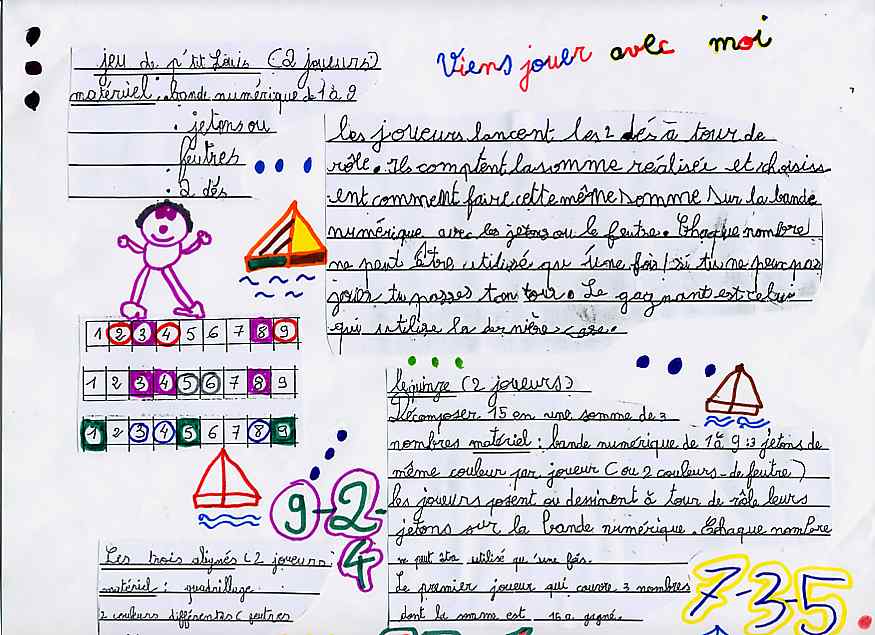 Viens jouer avec moi
jeu de p'tit Louis (2 joueurs)
matériel : bande numérique de 1 à 9
. jetons ou
. feutres
. 2 dés
les joueurs lancent les 2 dés à tour de
rôle. Ils comptent la somme réalisée et choisiss
ent comment faire cette même somme sur la bande
numérique avec les jetons ou le feutre. Chaque nombre
ne peut être utilisé qu'une fois! si tu ne peux pas
jouer tu passes ton tour. Le gagnant est celui
qui utilise la dernière case.
1 2 3 4 5 6 7 8 9
1 2 3 4 5 6 7 8 9
1 2 3 4 5 6 7 8 9
le quinze (2 joueurs)
Décomposer 15 en une somme de 3
nombres matériel : bande numérique de 1 à 9 : 3 jetons de
même couleur par joueur (ou 2 couleurs de feutre)
les joueurs posent ou dessinent à tour de rôle leurs
jetons sur la bande numérique. Chaque nombre
ne peut être utilisé qu'une fois.
Le premier joueur qui couvre 3 nombres
dont la somme est 15 a gagné.
9-2-
4
7-3-5
Les trois alignés (2 joueurs)
matériel : quadrillage
2 couleurs différentes (feutres